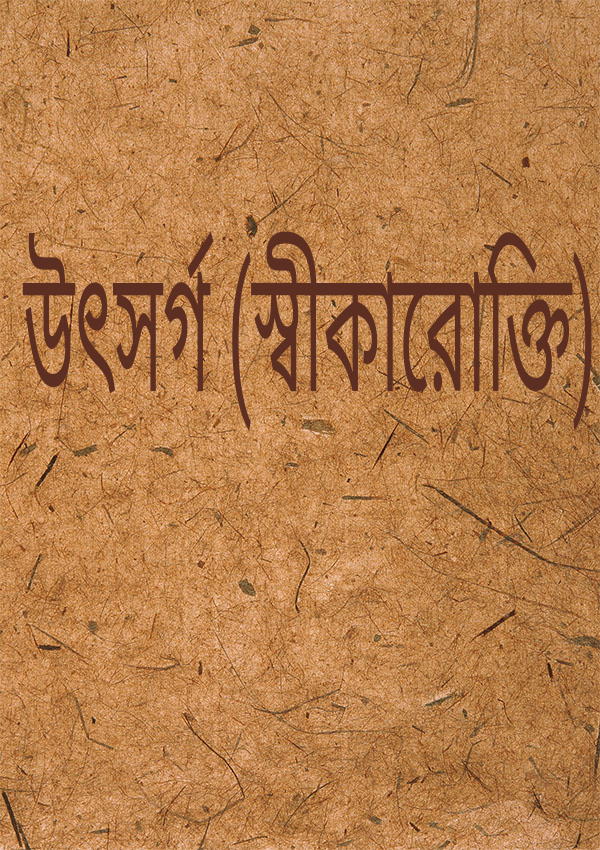 উৎসর্গ (স্বীকারোক্তি)